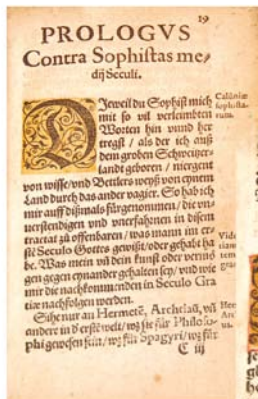 19
PROLOGVS
Contra Sophistas me⸗
dij Seculi.
DJeweil du Sophist mich
mit so vil verleumbten
Worten hin vnnd her
tregst / als der ich auß
dem groben Schweitzer⸗
landt geboren / niergent
von wisse / vnd Bettlers weyß von eynem
Land durch das ander vagier. So hab ich
mir auff dißmals fürgenommen / die vn⸗
uerstendigen vnd vnerfahnen in disem
tractat zů offenbaren / was mann im er⸗
stẽ Seculo Gottes gewißt / oder gehabt ha
be. Was mein vñ dein kunst oder vermö
gen gegen eynander gehalten sey / vnd wie
mir die nachkommenden in Seculo Gra
tiæ nachfolgen werden.
Sihe nur an Hermetẽ, Archelaũ, vñ
andere in d' erstẽ welt / wz sie für Philoso⸗
phi gewesen sein / wz Spagyri / wz für
C iij
Calũniæ
sophista⸗
rum.
Vide